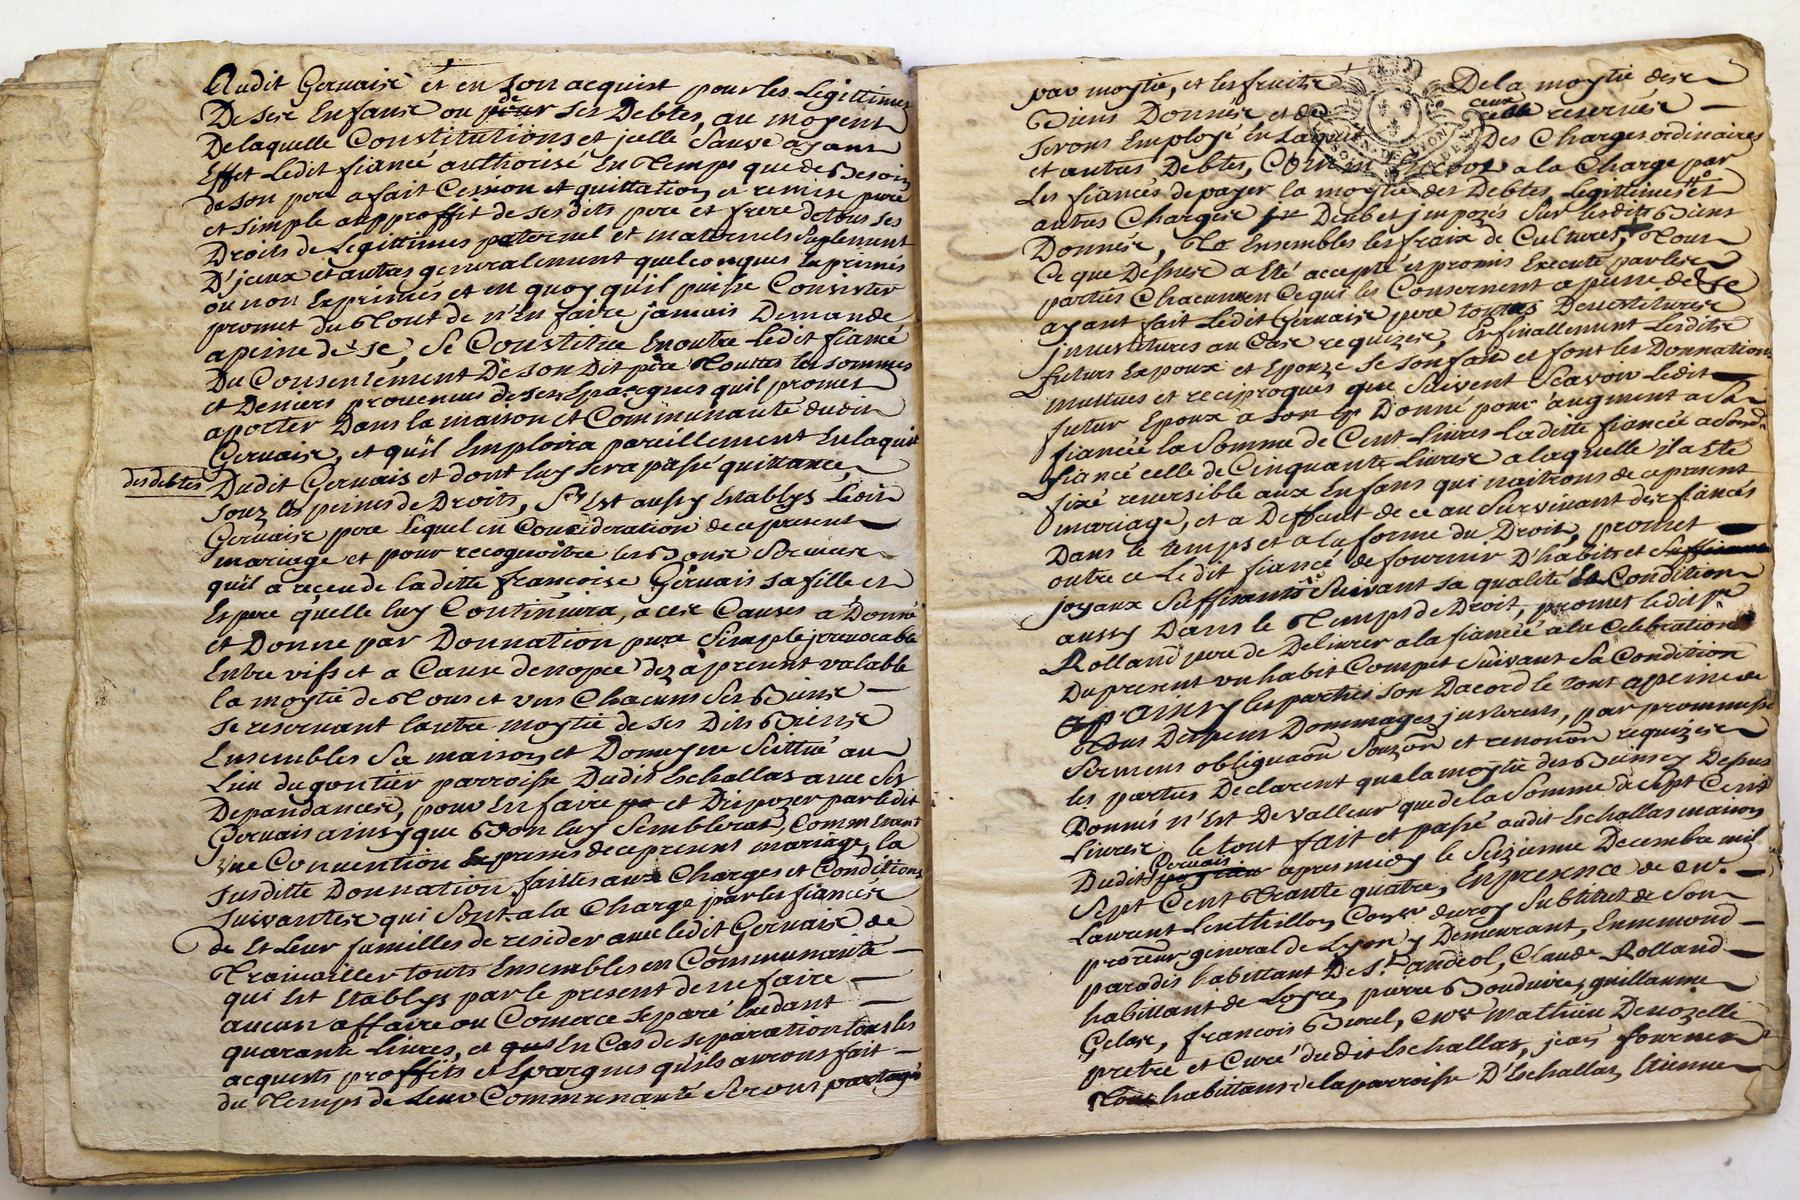 Audit Gervaise et en son acquist pour les Legittimes
De ses Enfans ou pour ses Debtes, au moyent
De laquelle Constitutions et jcelle Sauve ayant
Effet Ledit fiancé authorisé En Temps que de Besoin
de son pere a fait Cession et quittation et remise pure
et simple au proffit de sesdits pere et frere de tous ses
Droits de Legittimes paternel et maternels Suplement
D'jceux et autres generalement quelconques Exprimés
ou non Exprimés et en quoy qu'il puisse Consister
promet du Tout de n'en faire jâmais Demande
a peine de se, Se Constitue En outre Ledit fiancé
Du Consentement De son Dit pere Toutes les sommes
et Deniers provenus de ses Epargnes quil promet
aporter Dans la maison et Communauté dudit
Gervaise, et quïl Emploira pareillement En laquit
des debtes Dudit Gervais et dont luy sera passé quittance
souz les peines de Droits, S'y Est aussy Establys Ledit
Gervaise pere lequel en Consideration de ce present
mariage et pour recognoitre les Bons Services
quil a receu de laditte francoise Gervais sa fille et
Espere quelle luy Continuira, a ces Causes a Donné
et Donne par Donnation pure Simple jrrevocable
Entre vifs et a Cause de nopce dez à present valable
la moytié de Tous et uns Chacuns Ses Biens
se reservant lautre moytié de ses Dits Biens
Ensembles Sa maison et Domeyne Scittué au
Lieu du goutier parroisse Dudit Eschallas avec Ses
Dependances, pour En faire et Disposer par ledit
Gervais ainsy que Bon luy Semblerat, Comm Etant
une Convention Expresses de ce present mariage, la
susditte Donnation faittes aux Charges et Conditions
suivantes qui Sont a la Charge par les fiancés
de Et Leur familles de resider avec ledit Gervais de
Travailler touts Ensembles en Communauté
qui Est Establys par le present de ne faire
aucun affaire ou Comerce separé Exedant
quarante Livres, et En Cas de separation tous les
acquests proffits et Epargnes qu'ils auront fait
du Temps de Leur Communauté Seront partagés
par moytié, et les fruits De la moytié des
Biens Donnés, et de ceux reservés
seront Employé En laquit Des Charges ordinaires
et autres Debtes, Comme Encor a la Charge par
Les fiancés de payer la moytié des Debtes Legittimes et
autres Charges Deub et jmpozés Sur lesdits Biens
Donnés, Ensembles les fraix de Cultures, Tous
Ce que Dessus a Eté accepté et promis Executé par les
parties Chacun en Ce qui les Consernent a peine de se
ayant fait Ledit Gervaise pere toutes Devestitures
jnvestitures au Cas requizes, En finallement Lesdits
futurs Expoux et Epouze se son fait et font les Donnations
mutues et reciproques que Suivent Scavoir Ledit
futur Epoux a Donné pour augment a Sa
fiancée la Somme de Cent Livres Laditte fiancée a Sond.
fiancé celle de Cinquante Livres a laquelle il a Eté
fixé reversible aux Enfans qui naitrons de ce present
mariage, et a Deffaut de ce au Survivant des fiancés
Dans le temps et a la forme du Droit, promet
outre ce Ledit fiancé de fournir D'habits et
joyaux Suffisants Suivant sa qualité Et Condition
aussy Dans le Temps de Droit, promet ledit Sr.
Rolland pere de Delivrer a la fiancéé a la Celebration
Du present un habit Complet Suivant Sa Condition
ainsy les parties son Dacord le tout a peine de
Tous Depens Dommages jnterets, par prommesse
Serment obligaôn Souzôn et renonôn requizes
les parties Declarent que la moytié des Biens cy Dessus
Donnés n'Est De valleur que de la Somme de Sept Cent
Livres, le tout fait et passé audit Eschallas maison
Dudit Gervais apres midy le Seizieme Decembre mil
Sept Cent Trante quatre, En presence de Mr.
Laurent Lenthillon Conser. du roy Subtitut de Son
procureur general de Lyon y Demeurant, Ennemond
paradis habittant De St. andeol, Claude Rolland
habittant de Loyre, pierre Bouduire, guillaume
Gelas, francois Burel, Mre. Mathieu Denozelle
pretre et Curé dudit Eschallas, jean fournier
habittans de la parroisse D'Eschallas, Etienne